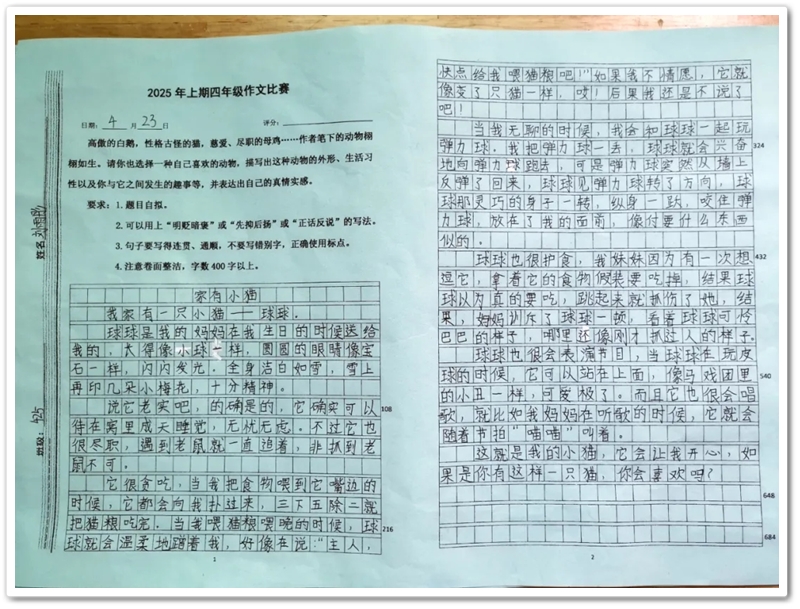 2025年上期四年级作文比赛
日期：4月23日 评分：
高傲的白鹅，性格古怪的猫，慈爱、尽职的母鸡……作者笔下的动物栩
栩如生。请你也选择一种自己喜欢的动物，描写出这种动物的外形、生活习
性以及你与它之间发生的趣事等，并表达出自己的真情实感。
要求：1.题目自拟。
2.可以用上“明贬暗褒”或“先抑后扬”或“正话反说”的写法。
3.句子要写得连贯、通顺，不要写错别字，正确使用标点。
4.注意卷面整洁，字数400字以上。
姓名
班级：425
家有小猫
我家有一只小猫——球球。
球球是我的妈妈在我生日的时候送给
我的，长得像小球一样，圆圆的眼睛像宝
石一样，闪闪发光。全身洁白如雪，雪上
再印几朵小梅花，十分精神。
说它老实吧，的确是的，它确实可以 108
待在窝里成天睡觉，无忧无虑。不过它也
很尽职，遇到老鼠就一直追着，非抓到老
鼠不可。
它很贪吃，当我把食物喂到它嘴边的
时候，它都会向我扑过来，三下五除二就
把猫粮吃完。当我喂猫粮喂晚的时候，球 216
球就会温柔地蹭着我，好像在说：“主人，
1
快点给我喂猫粮吧！”如果我不情愿，它就
像变了只猫一样，哎！后果我还是不说了
吧！
当我无聊的时候，我会和球球一起玩
弹力球。我把弹力球一丢，球球就会兴奋 324
地向弹力球跑去，可是弹力球突然从墙上
反弹了回来，球球见弹力球转了方向，球
球那灵巧的身子一转，纵身一跃，咬住弹
力球，放在了我的面前，像付要什么东西
似的。
球球也很护食，我妹妹因为有一次想 432
逗它，拿着它的食物假装要吃掉，结果球
球以为真的要吃，跳起来就抓伤了她，结
果，妈妈训斥了球球一顿，看着球球可怜
巴巴的样子，哪里还像刚才抓过人的样子。
球球也很会表演节目，当球球在玩皮
球的时候，它可以站在上面，像马戏团里 540
的小丑一样，可爱极了。而且它也很会唱
歌，就比如我妈妈在听歌的时候，它就会
随着节拍“喵喵”叫着。
这就是我的小猫，它会让我开心，如
果是你有这样一只猫，你会喜欢吗？
648
684
2